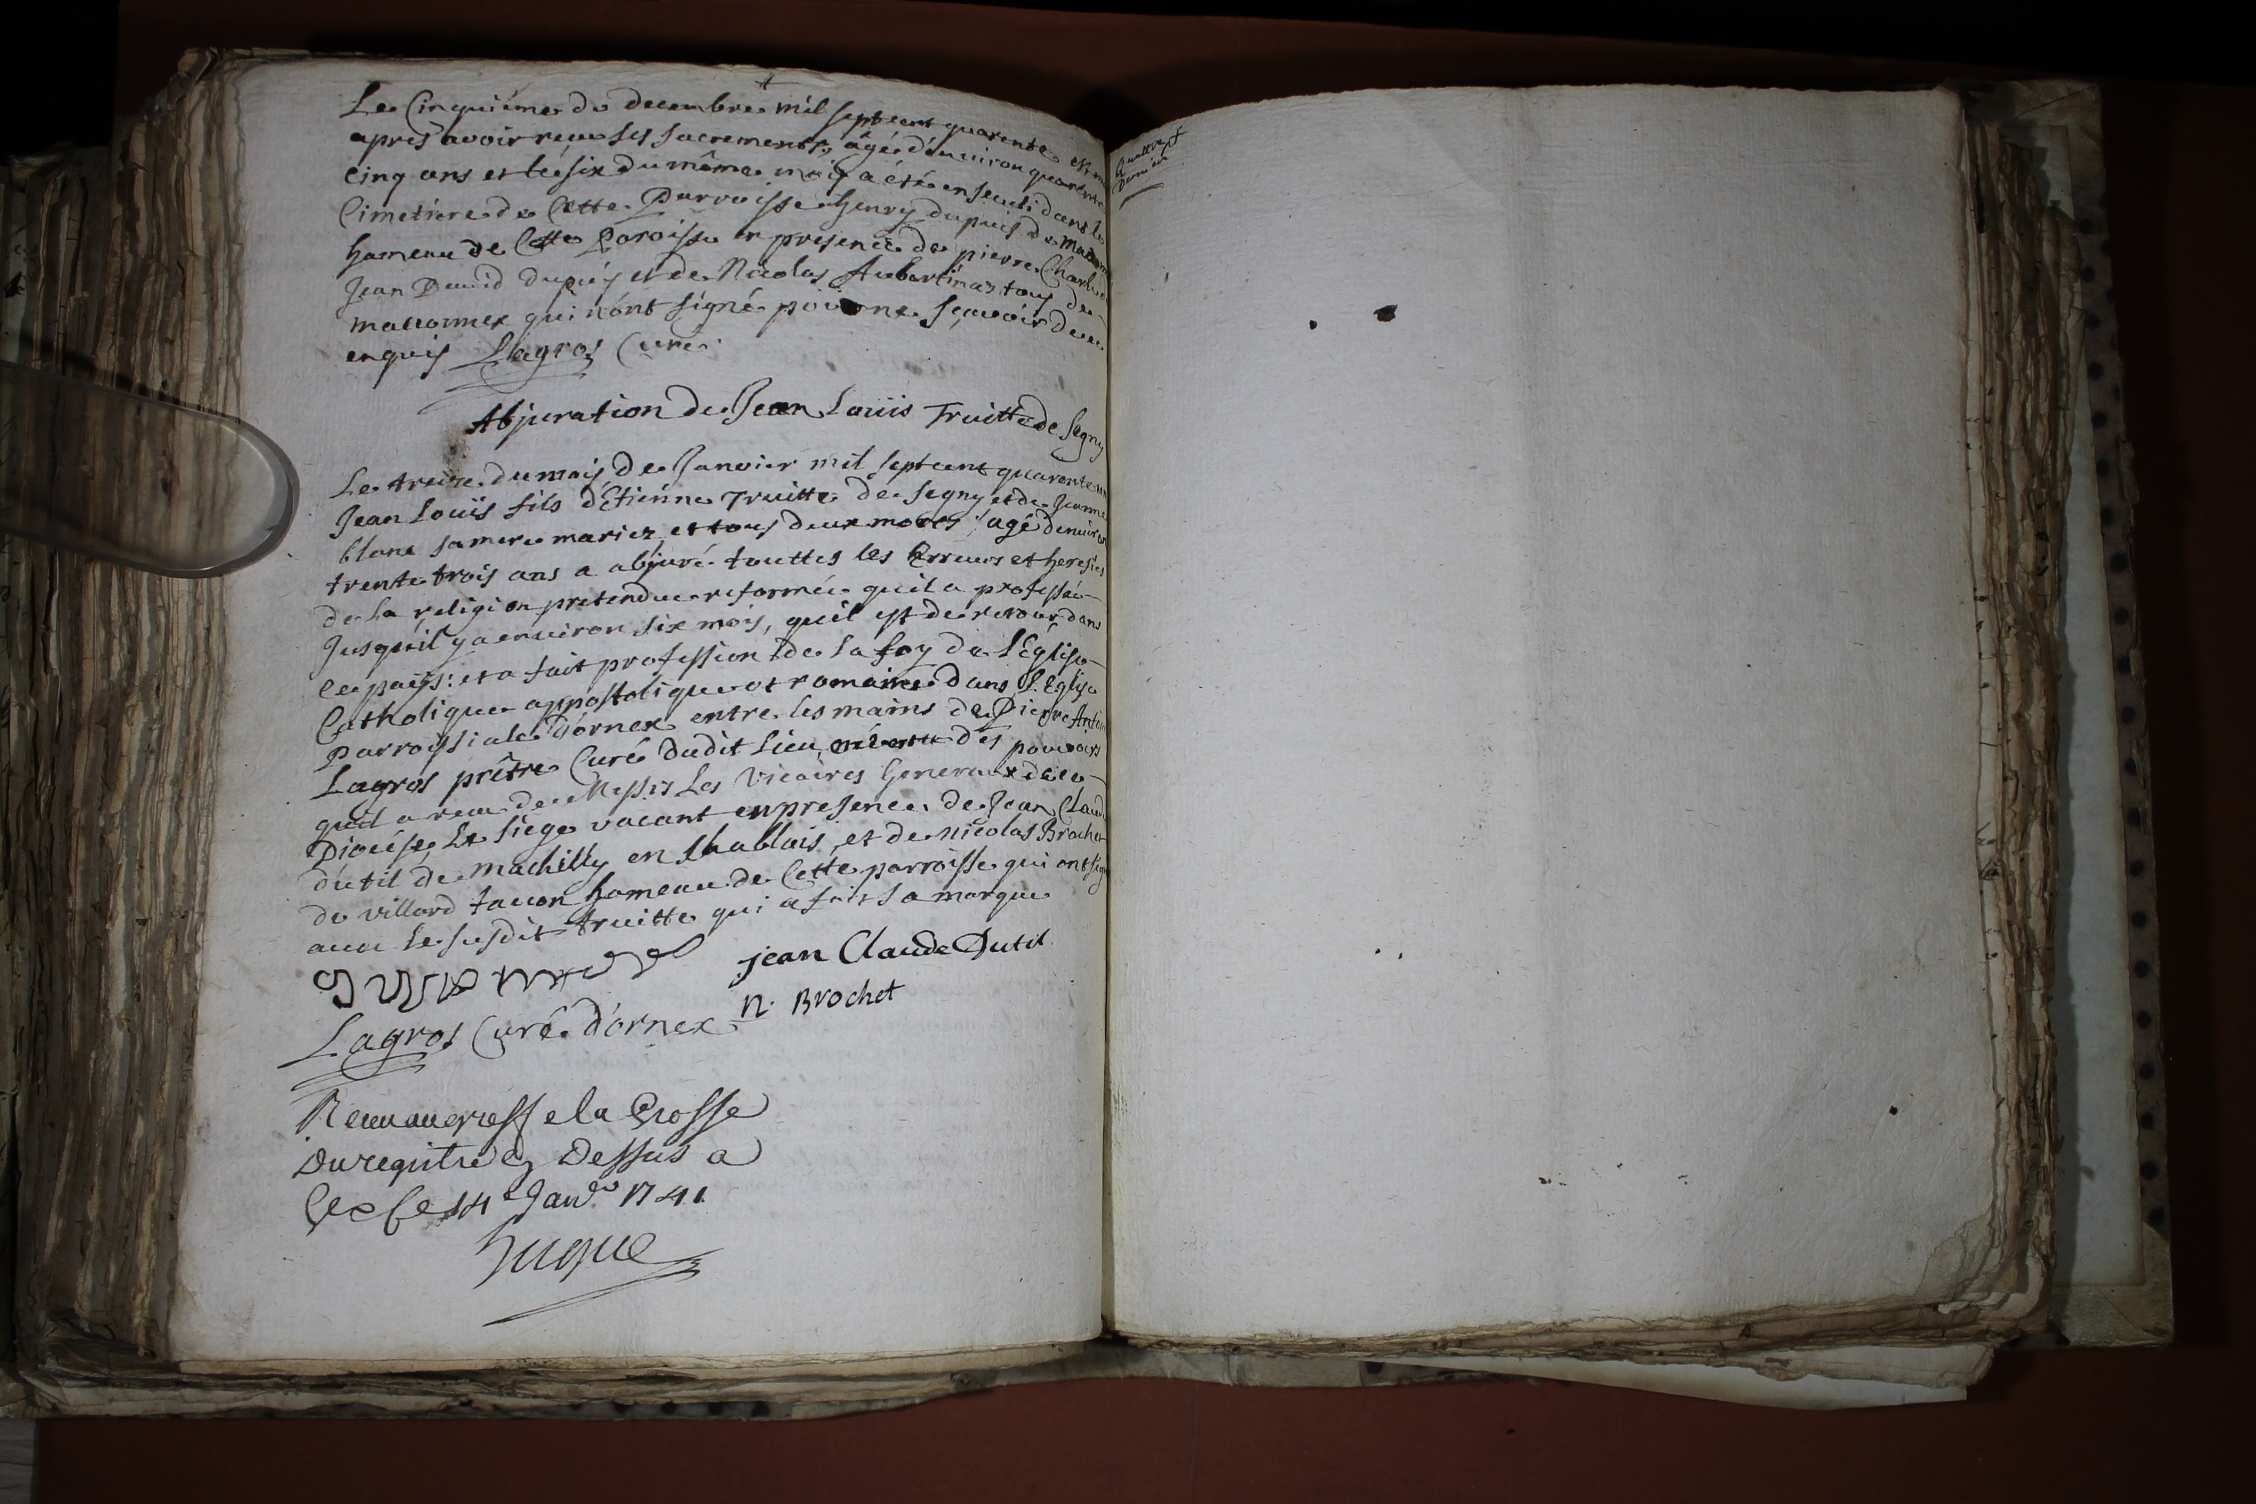 Le Cinquiéme de decembre mil sept cent quarente est mort
apres avoir reçeu ses sacrements, âgé d'environ quarente
cinq ans et le six du même mois a été enseveli dans le
Cimetiere de Cette Parroisse henry dupuis de maconnex
hameau de Cette Paroisse en presence de pierre Charles
Jean David dupuis et de Nicolas Aubertin tous de
maconnex qui n'ont signé pour ne sçavoir de ce
enquis Lagros Curé
Abjuration de Jean Louïs Truitte de Segny
Le treize du mois de Janvier mil sept cent quarente un
Jean Louïs fils d'Etiénne Truitte de Segny et de Jeanne
blanc sa mere mariez et tous deux morts, agé d'environ
trente trois ans a abjuré touttes les Erreurs et heresies
de la religion pretendue reformée quil a professée
Jusqu'il y a environ six mois, quil est de retour dans
ce païs: et a fait profession de la foy de L'Eglise
Catholique appostolique et romaine dans L'Eglise
Parroissiale D'ornex entre les mains de Pierre Antoine
Lagros prêtre Curé dudit Lieu, en vertu des pouvoirs
quil a receu de Messrs Les Vicaires Generaux de ce
Diocése Le siege vacant en presence de Jean Claude
dutil de machilly en Chablais, et de nicolas Brochet
de villard tacon hameau de Cette parroisse qui ont signé
avec le susdit truitte qui a fait sa marque
jean Claude Dutil
n. Brochet
Lagros Curé d'ornex
Receu au greffe la Grosse
Du registre cy Dessus a
Gex Ce 14e Janver 1741.
huque